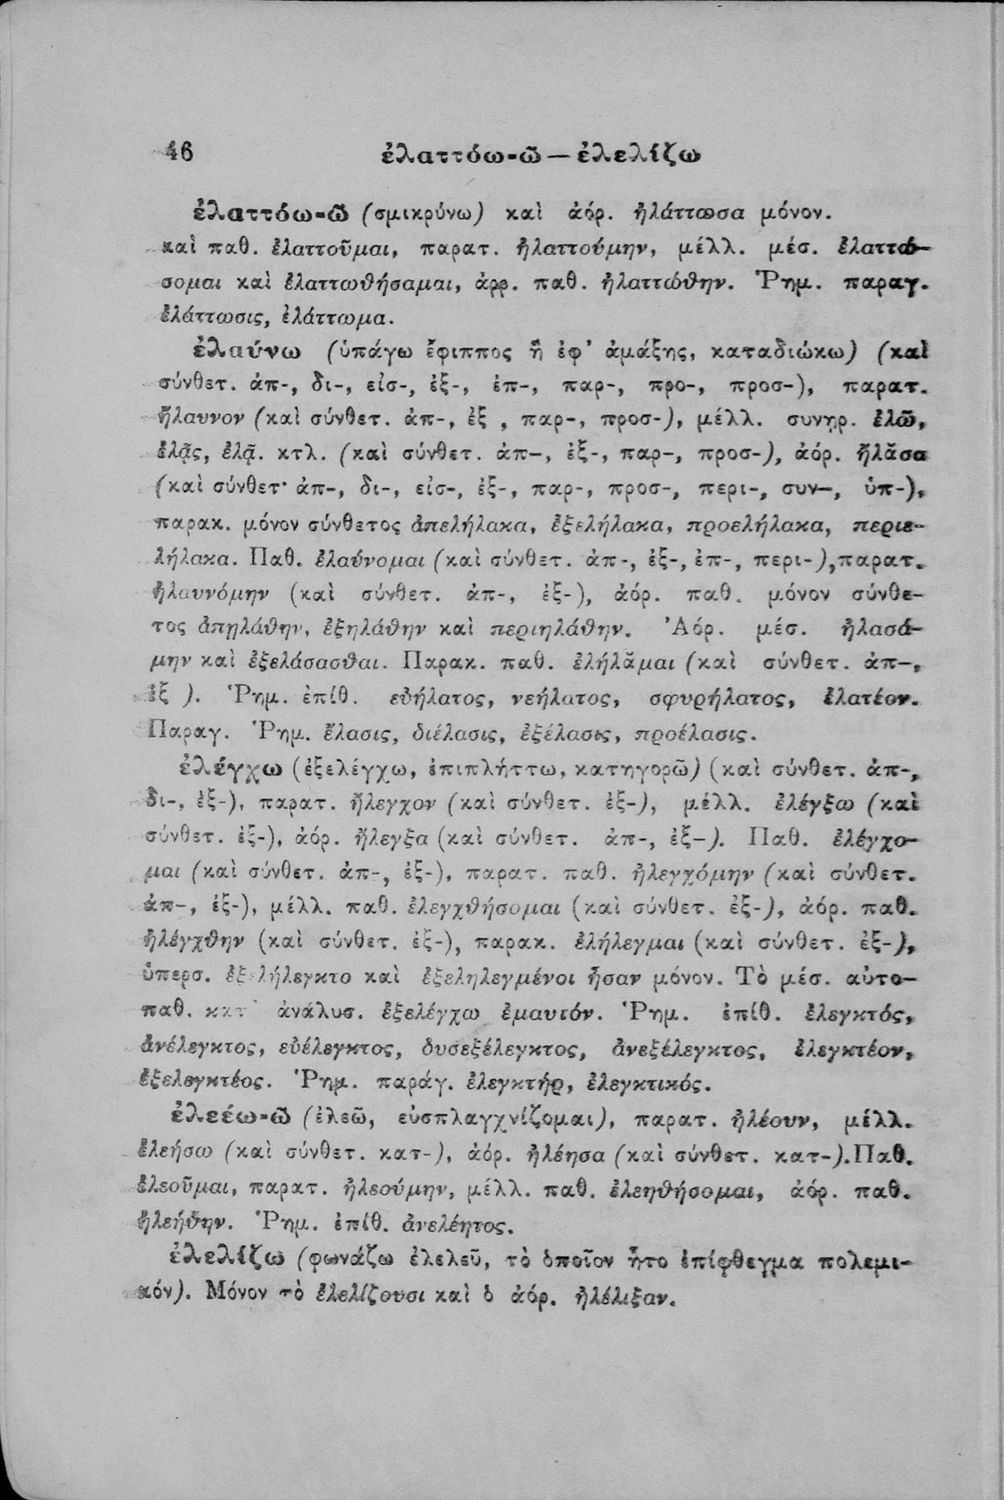 46 ἐλαττόω-ῶ — ἐλελίζω
ἐλαττόω-ῶ (σμικρύνω) καὶ ἀόρ. ἠλάττωσα μόνον.
καὶ παθ. ἐλαττοῦμαι, παρατ. ἠλαττούμην, μέλλ. μέσ. ἐλαττώ-
σομαι καὶ ἐλαττωθήσαμαι, ἀρρ. παθ. ἠλαττώθην. Ῥημ. παραγ.
ἐλάττωσις, ἐλάττωμα.
ἐλαύνω (ὑπάγω ἔφιππος ἢ ἐφ’ ἁμάξης, καταδιώκω) (καὶ
σύνθετ. ἀπ-, δι-, εἰσ-, ἐξ-, ἐπ-, παρ-, προ-, προσ-), παρατ.
ἤλαυνον (καὶ σύνθετ. ἀπ-, ἐξ , παρ-, προσ-), μέλλ. συνῃρ. ἐλῶ,
ἐλᾷς, ἐλᾷ. κτλ. (καὶ σύνθετ. ἀπ-, ἐξ-, παρ-, προσ-), ἀόρ. ἤλᾰσα
(καὶ σύνθετ· ἀπ-, δι-, εἰσ-, ἐξ-, παρ-, προσ-, περι-, συν-, ὑπ-),
παρακ. μόνον σύνθετος ἀπελήλακα, ἐξελήλακα, προελήλακα, περιε-
λήλακα. Παθ. ἐλαύνομαι (καὶ σύνθετ. ἀπ-, ἐξ-, ἐπ-, περι-),παρατ.
ἠλαυνόμην (καὶ σύνθετ. ἀπ-, ἐξ-), ἀόρ. παθ. μόνον σύνθε-
τος ἀπηλάθην, ἐξηλάθην καὶ περιηλάθην. Ἀόρ. μέσ. ἠλασά-
μην καὶ ἐξελάσασθαι. Παρακ. παθ. ἐλήλᾰμαι (καὶ σύνθετ. ἀπ-,
ἐξ ). Ῥημ. ἐπίθ. εὐήλατος, νεήλατος, σφυρήλατος, ἐλατέον.
Παραγ. Ῥημ. ἔλασις, διέλασις, ἐξέλασις, προέλασις.
ἐλέγχω (ἐξελέγχω, ἐπιπλήττω, κατηγορῶ) (καὶ σύνθετ. ἀπ-,
δι-, ἐξ-), παρατ. ἤλεγχον (καὶ σύνθετ. ἐξ-), μέλλ. ἐλέγξω (καὶ
σύνθετ. ἐξ-), ἀόρ. ἤλεγξα (καὶ σύνθετ. ἀπ-, ἐξ-). Παθ. ἐλέγχο-
μαι (καὶ σύνθετ. ἀπ-, ἐξ-), παρατ. παθ. ἠλεγχόμην (καὶ σύνθετ.
ἀπ-, ἐξ-), μέλλ. παθ. ἐλεγχθήσομαι (καὶ σύνθετ. ἐξ-), ἀόρ. παθ.
ἠλέγχθην (καὶ σύνθετ. ἐξ-), παρακ. ἐλήλεγμαι (καὶ σύνθετ. ἐξ-),
ὑπερσ. ἐξ λήλεγκτο καὶ ἐξεληλεγμένοι ἦσαν μόνον. Τὸ μέσ. αὐτο-
παθ. κατ’ ἀνάλυσ. ἐξελέγχω ἐμαυτόν. Ῥημ. ἐπίθ. ἐλεγκτός,
ἀνέλεγκτος, εὐέλεγκτος, δυσεξέλεγκτος, ἀνεξέλεγκτος, ἐλεγκτέον,
ἐξελεγκτέος. Ῥημ. παράγ. ἐλεγκτήρ, ἐλεγκτικός.
ἐλεέω-ῶ (ἐλεῶ, εὐσπλαγχνίζομαι), παρατ. ἠλέουν, μέλλ.
ἐλεήσω (καὶ σύνθετ. κατ-), ἀόρ. ἠλέησα (καὶ σύνθετ. κατ-).Παθ.
ἐλεοῦμαι, παρατ. ἠλεούμην, μέλλ. παθ. ἐλεηθήσομαι, ἀόρ. παθ.
ἠλεήθην. Ῥημ. ἐπίθ. ἀνελέητος.
ἐλελίζω (φωνάζω ἐλελεῦ, τὸ ὁποῖον ἦτο ἐπίφθεγμα πολεμι-
κόν). Μόνον τὸ ἐλελίζουσι καὶ ὁ ἀόρ. ἠλέλιξαν.